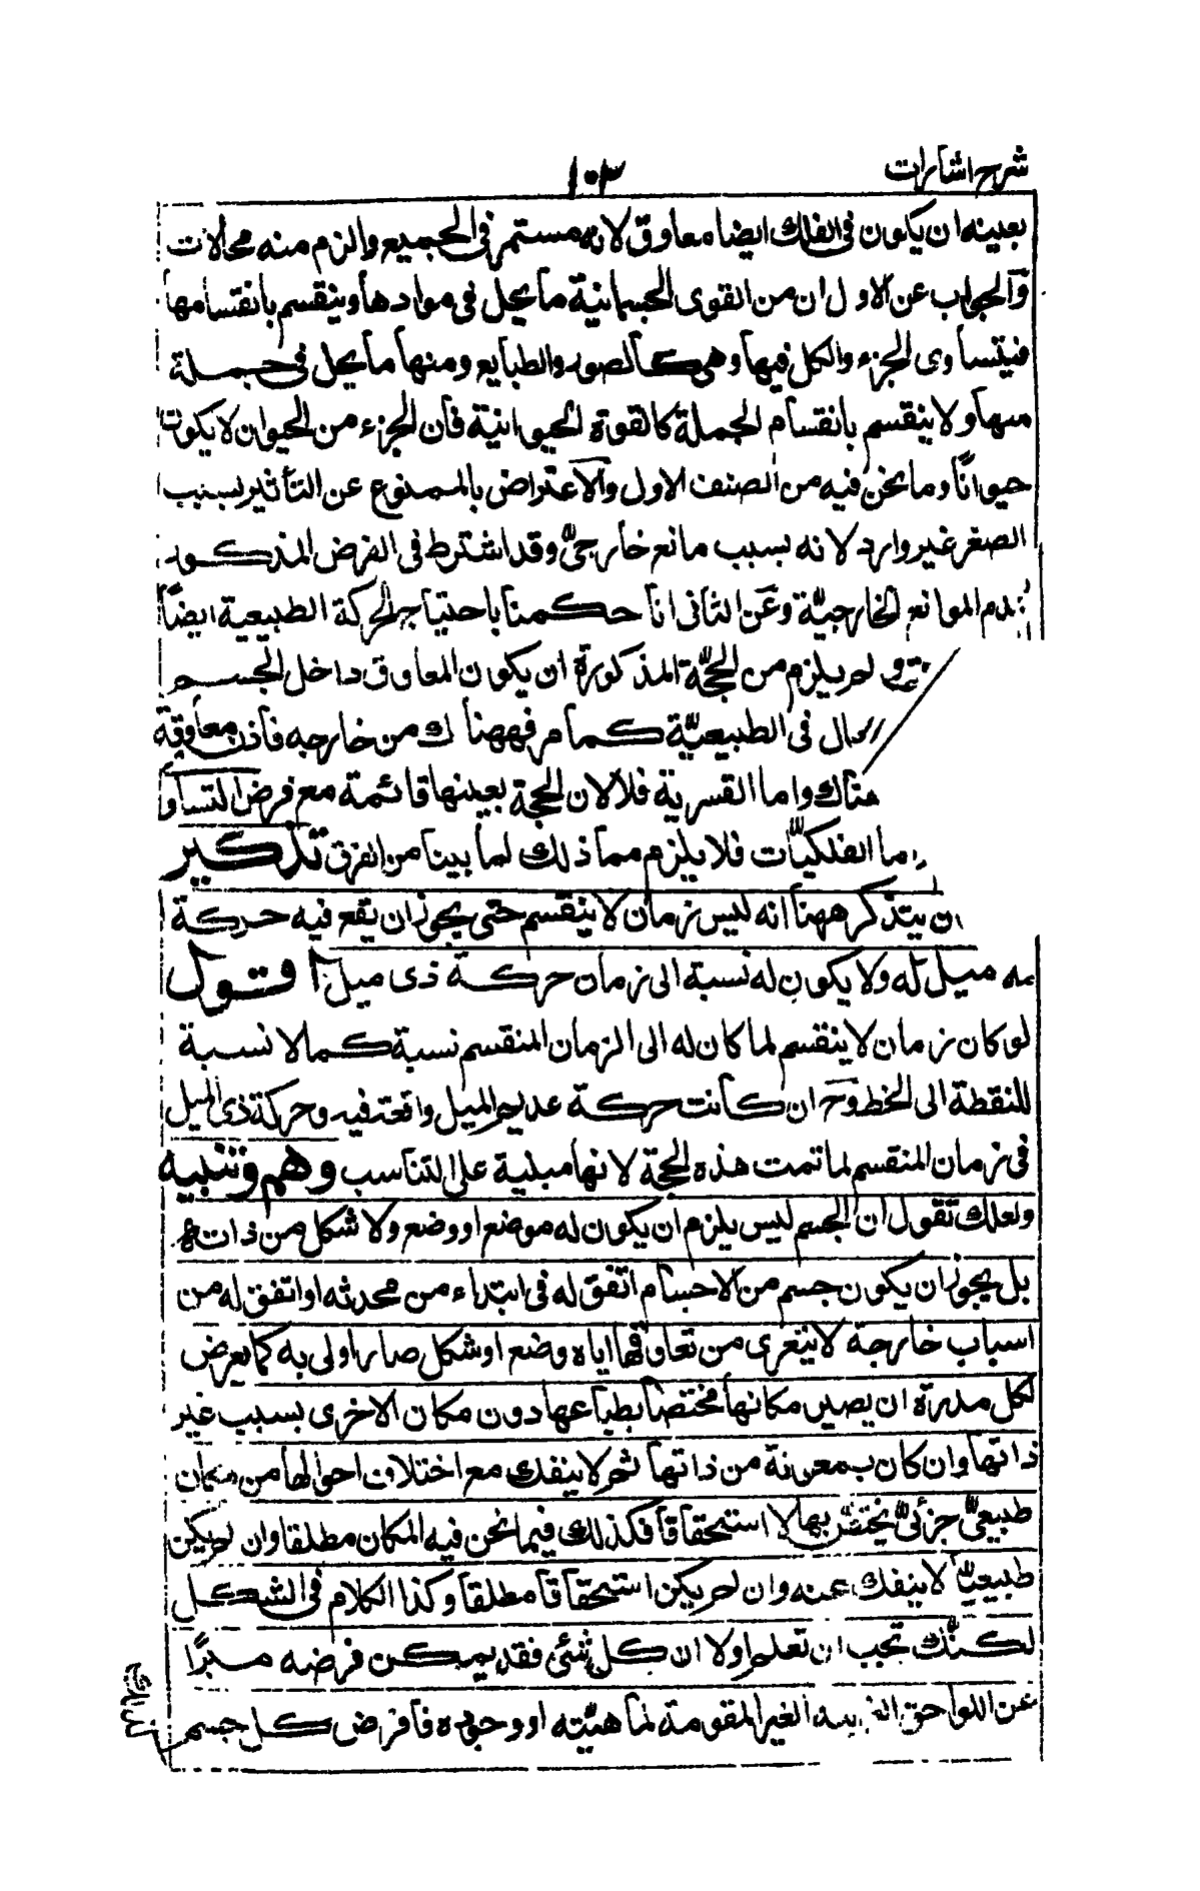 شرح اشارات
١٠٣
بعينه ان يكون فى الفلك ايضا معاوق لانه مستمر فى الجميع والزم منه محالات
والجواب عن الاول ان من القوى الجسمانية ما يحل فى موادها وينقسم بانقسامها
فيتساوى الجزء والكل فيها وهى كالصور والطبايع ومنها ما يحل فى جملة
منها ولا ينقسم بانقسام الجملة كالقوة الحيوانية فان الجزء من الحيوان لا يكون
حيوانًا وما نحن فيه من الصنف الاول والاعتراض بالممنوع عن التأثير بسبب
الصغر غير وارد لانه بسبب مانع خارجىّ وقد اشترط فى الفرض المذكور
عدم الموانع الخارجيّة وعن الثانى انا حكمنا باحتياج الحركة الطبيعية ايضًا
ولم يلزم من الحجّة المذكورة ان يكون المعاوق داخل الجسم
الحال فى الطبيعيّة كما مر فههناك من خارجه فاذن معاوقة
هناك واما القسرية فلا لان الحجة بعينها قائمة مع فرض التساو
ما الفلكيّات فلا يلزم مما ذلك لما بينا من الفرق تذكير
ان يتذكر ههنا انه ليس زمان لا ينقسم حتى يجوز ان يقع فيه حركة
ميل له ولا يكون له نسبة الى زمان حركة ذى ميل اقول
لو كان زمان لا ينقسم لما كان له الى الزمان المنقسم نسبة كما لا نسبة
للنقطة الى الخط وح ان كانت حركة عديم الميل واقعة فيه وحركة ذى الميل
فى زمان المنقسم لما تمت هذه الحجة لانها مبنية على التناسب وهم وتنبيه
ولعلك تقول ان الجسم ليس يلزم ان يكون له موضع او وضع ولا شكل من ذاته
بل يجوز ان يكون جسم من الاجسام اتفق له فى ابتداء من محدثه او اتفق له من
اسباب خارجة لا يتعرى من تعاورها اياه وضع او شكل صار اولى به كما يعرض
لكل مدرة ان يصير مكانها مختصا بطباعها دون مكان الاخرى بسبب غير
ذاتها وان كان بمعونة من ذاتها ثم لا ينفك مع اختلاف احوالها من مكان
طبيعىّ جزئىّ يختص بها لا استحقاقا فكذلك فيما نحن فيه المكان مطلقا وان لم يكن
طبيعيّا لا ينفك عنه وان لم يكن استحقاقا مطلقا وكذا الكلام فى الشكل
لكنّك تجب ان تعلم اولا ان كل شئ فقد يمكن فرضه مبرًا
عن اللواحق الغريبة الغير المقومة لماهيّته او وجوده فافرض كل جسم